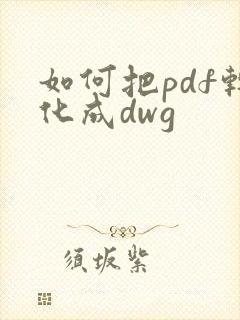 如何把pdf转
化成dwg
须坂紫